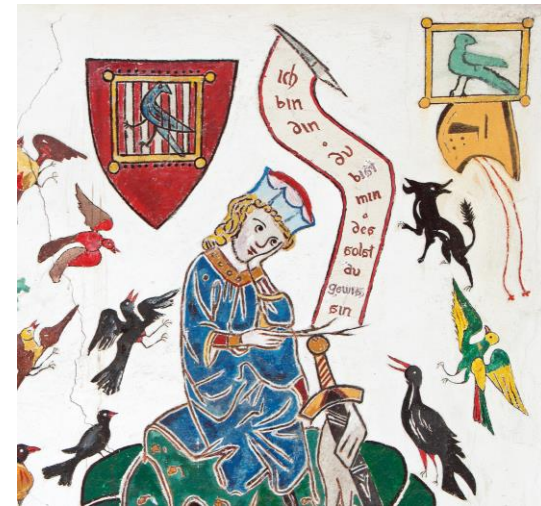 ich
bin
din ·
du
bist
min ·
des
solst
du
gewis
sin